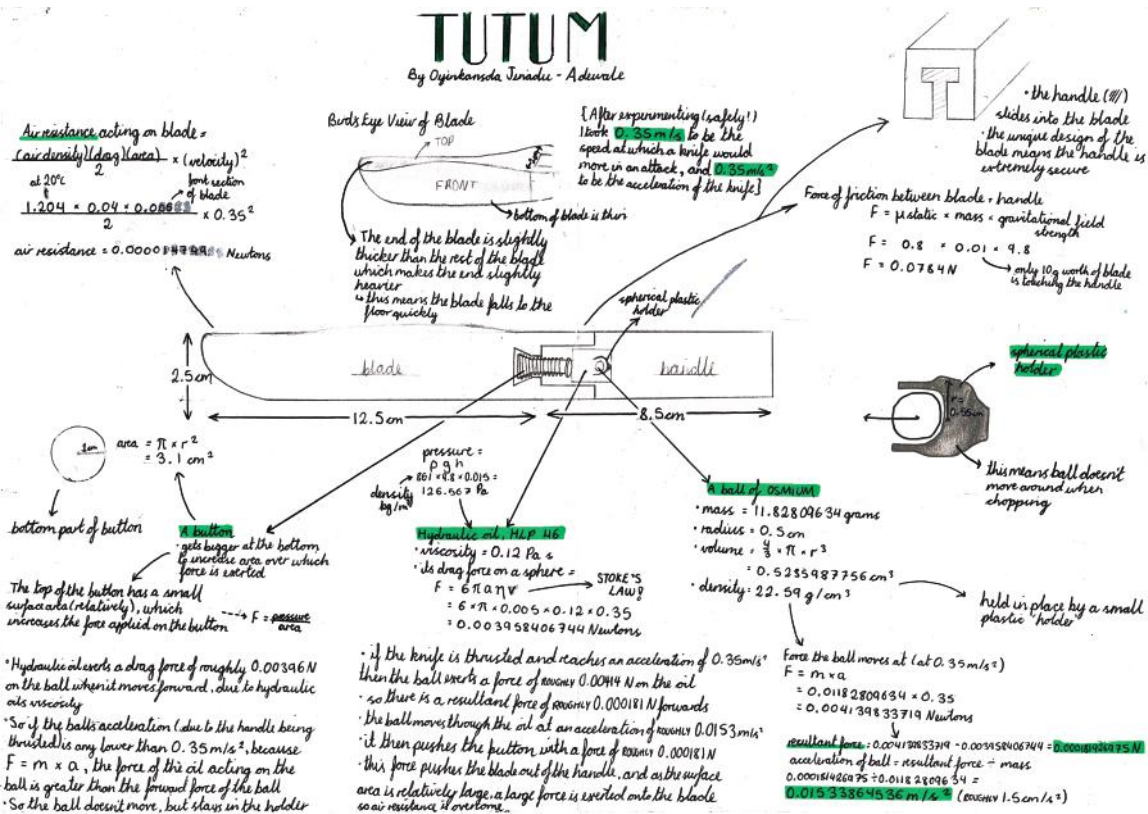 TUTUM
By Oyinkansola Jinadu - Adewale
Air resistance acting on blade =
(air density)(drag)(area) × (velocity)²
2
at 20°C
front section
of blade
1.204 × 0.04 × 0.005 × 0.35²
2
air resistance = 0.0000 Newtons
Birds Eye View of Blade
TOP
FRONT
bottom of blade is thin
The end of the blade is slightly
thicker than the rest of the blade
which makes the end slightly
heavier
↳ this means the blade falls to the
floor quickly
[After experimenting (safely!)
I took 0.35 m/s to be the
speed at which a knife would
move in an attack, and 0.35 m/s²
to be the acceleration of the knife]
• the handle (///)
slides into the blade
• the unique design of the
blade means the handle is
extremely secure
Force of friction between blade + handle
F = μstatic × mass × gravitational field
strength
F = 0.8 × 0.01 × 9.8
F = 0.0784N
only 10g worth of blade
is touching the handle
spherical plastic
holder
blade
handle
2.5cm
12.5cm
8.5cm
spherical plastic
holder
r =
0.55cm
this means ball doesn't
move around when
chopping
1cm
area = π × r²
= 3.1 cm²
bottom part of button
A button
• gets bigger at the bottom
to increase area over which
force is exerted
The top of the button has a small
surface area (relatively), which
increases the force applied on the button
F = pressure
area
pressure =
ρ g h
861 × 9.8 × 0.015 =
126.567 Pa
density
kg/m³
Hydraulic oil, HLP 46
• viscosity = 0.12 Pa s
• its drag force on a sphere =
F = 6πaηv
STOKE'S
LAW!
= 6 × π × 0.005 × 0.12 × 0.35
= 0.003958406744 Newtons
A ball of OSMIUM
• mass = 11.82809634 grams
• radius = 0.5cm
• volume = 4/3 × π × r³
= 0.5235987756 cm³
• density = 22.59 g/cm³
held in place by a small
plastic 'holder'
• Hydraulic oil exerts a drag force of roughly 0.00396N
on the ball when it moves forward, due to hydraulic
oils viscosity
• So if the balls acceleration (due to the handle being
thrusted) is any lower than 0.35m/s², because
F = m × a, the force of the oil acting on the
ball is greater than the forward force of the ball
• So the ball doesn't move, but stays in the holder
• if the knife is thrusted and reaches an acceleration of 0.35m/s²
then the ball exerts a force of ROUGHLY 0.00414 N on the oil
• so there is a resultant force of ROUGHLY 0.000181N forwards
• the ball moves through the oil at an acceleration of ROUGHLY 0.0153m/s²
• it then pushes the button with a force of ROUGHLY 0.000181N
• this force pushes the blade out of the handle, and as the surface
area is relatively large, a large force is exerted onto the blade
so air resistance is overcome
Force the ball moves at (at 0.35m/s²)
F = m × a
= 0.01182809634 × 0.35
= 0.004139833719 Newtons
resultant force = 0.004139833719 - 0.003958406744 = 0.000181426975 N
acceleration of ball = resultant force ÷ mass
0.000181426975 ÷ 0.01182809634 =
0.01533864536 m/s² (ROUGHLY 1.5cm/s²)